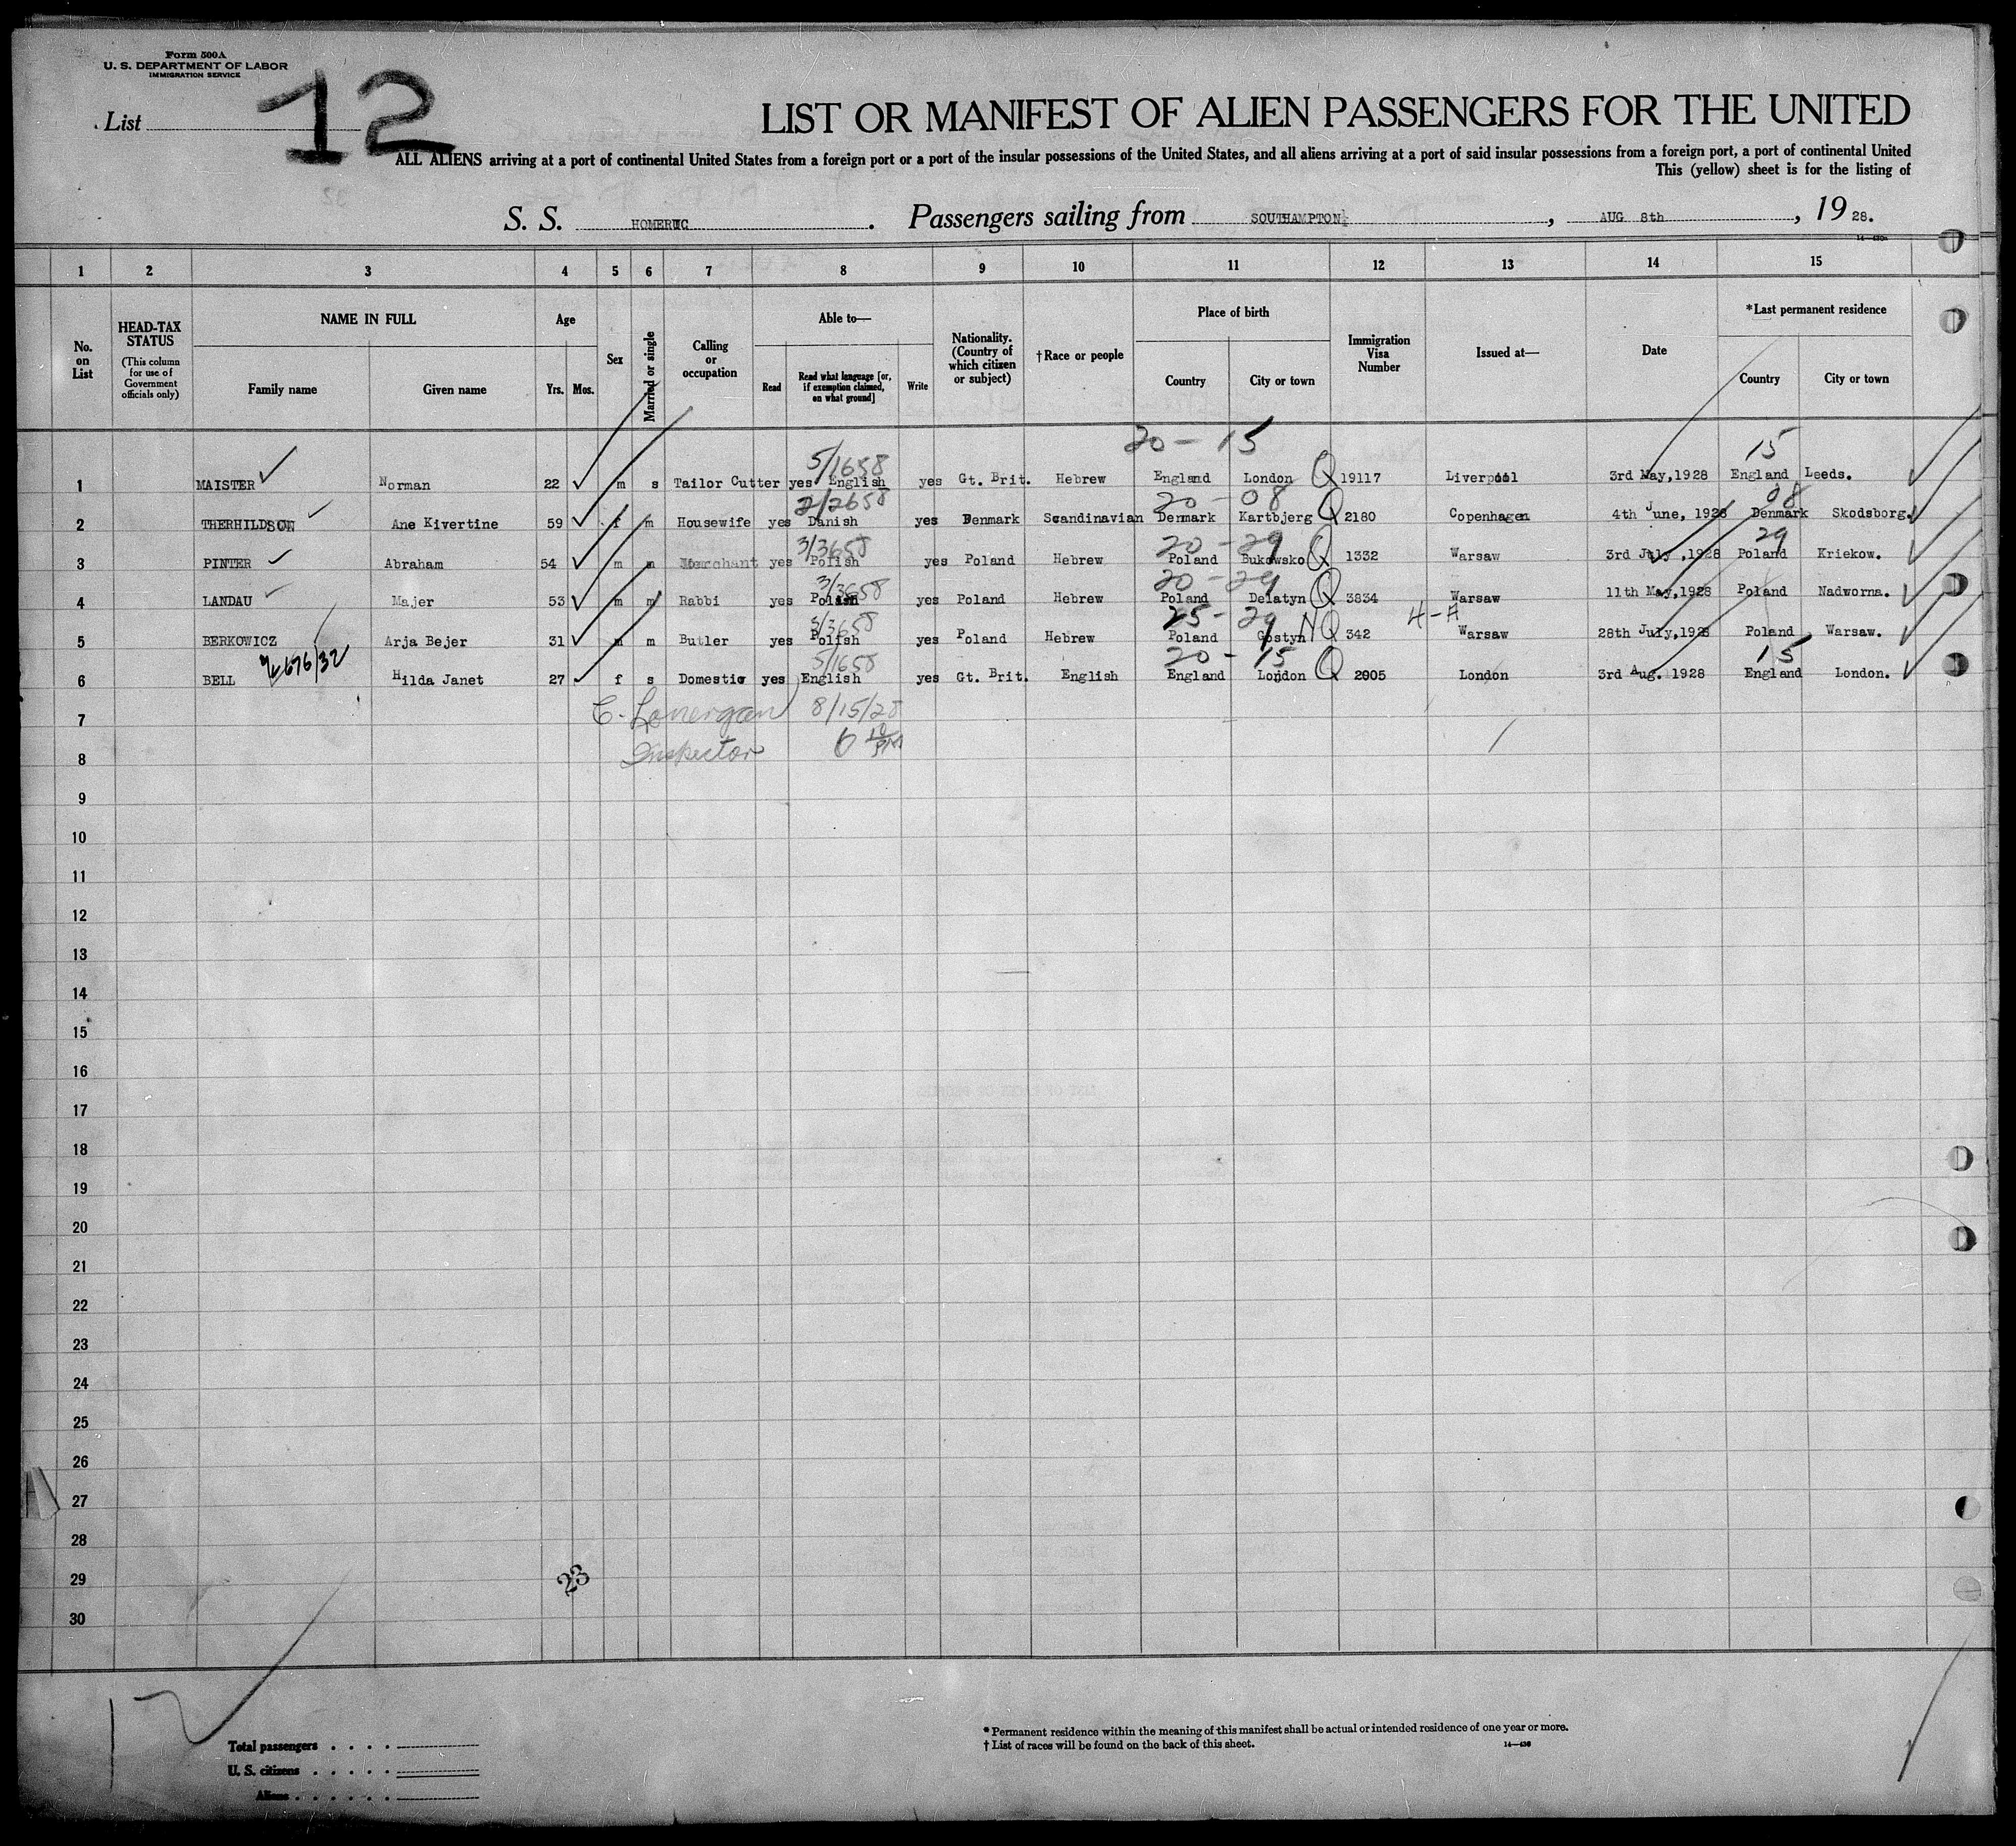 Form 500A
U. S. DEPARTMENT OF LABOR
IMMIGRATION SERVICE
List 12
LIST OR MANIFEST OF ALIEN PASSENGERS FOR THE UNITED
ALL ALIENS arriving at a port of continental United States from a foreign port or a port of the insular possessions of the United States, and all aliens arriving at a port of said insular possessions from a foreign port, a port of continental United
This (yellow) sheet is for the listing of
S. S. HOMERIC. Passengers sailing from SOUTHAMPTON, AUG 8th, 19 28.
1 2 3 4 5 6 7 8 9 10 11 12 13 14 15
No. on List
HEAD-TAX STATUS (This column for use of Government officials only)
NAME IN FULL Family name Given name
Age Yrs. Mos.
Sex
Married or single
Calling or occupation
Able to— Read Read what language [or, if exemption claimed, on what ground] Write
Nationality. (Country of which citizen or subject)
†Race or people
Place of birth Country City or town
Immigration Visa Number
Issued at—
Date
*Last permanent residence Country City or town
20 - 15 15
5/1658
1 MAISTER Norman 22 m s Tailor Cutter yes English yes Gt. Brit. Hebrew England London Q 19117 Liverpool 3rd May, 1928 England Leeds.
2/2658 20 - 08 08
2 THERHILDSON Ane Kivertine 59 f m Housewife yes Danish yes Denmark Scandinavian Denmark Kartbjerg Q 2180 Copenhagen 4th June, 1928 Denmark Skodsborg.
3/3658 20 - 29 29
3 PINTER Abraham 54 m m Merchant yes Polish yes Poland Hebrew Poland Bukowsko Q 1332 Warsaw 3rd July, 1928 Poland Kriekow.
3/3658 20 - 29
4 LANDAU Majer 53 m m Rabbi yes Polish yes Poland Hebrew Poland Delatyn Q 3834 Warsaw 11th May, 1928 Poland Nadworna.
3/3658 25 - 29 4-A
5 BERKOWICZ Arja Bejer 31 m m Butler yes Polish yes Poland Hebrew Poland Gostyn NQ 342 Warsaw 28th July, 1928 Poland Warsaw.
676/32 5/1658 20 - 15 15
6 BELL Hilda Janet 27 f s Domestic yes English yes Gt. Brit. English England London Q 2905 London 3rd Aug. 1928 England London.
7 C. Lonergan 8/15/28
8 Inspector 6 10 PM
9
10
11
12
13
14
15
16
17
18
19
20
21
22
23
24
25
26
27
28
29 23
30
12
* Permanent residence within the meaning of this manifest shall be actual or intended residence of one year or more.
† List of races will be found on the back of this sheet.
Total passengers
U. S. citizens
Aliens